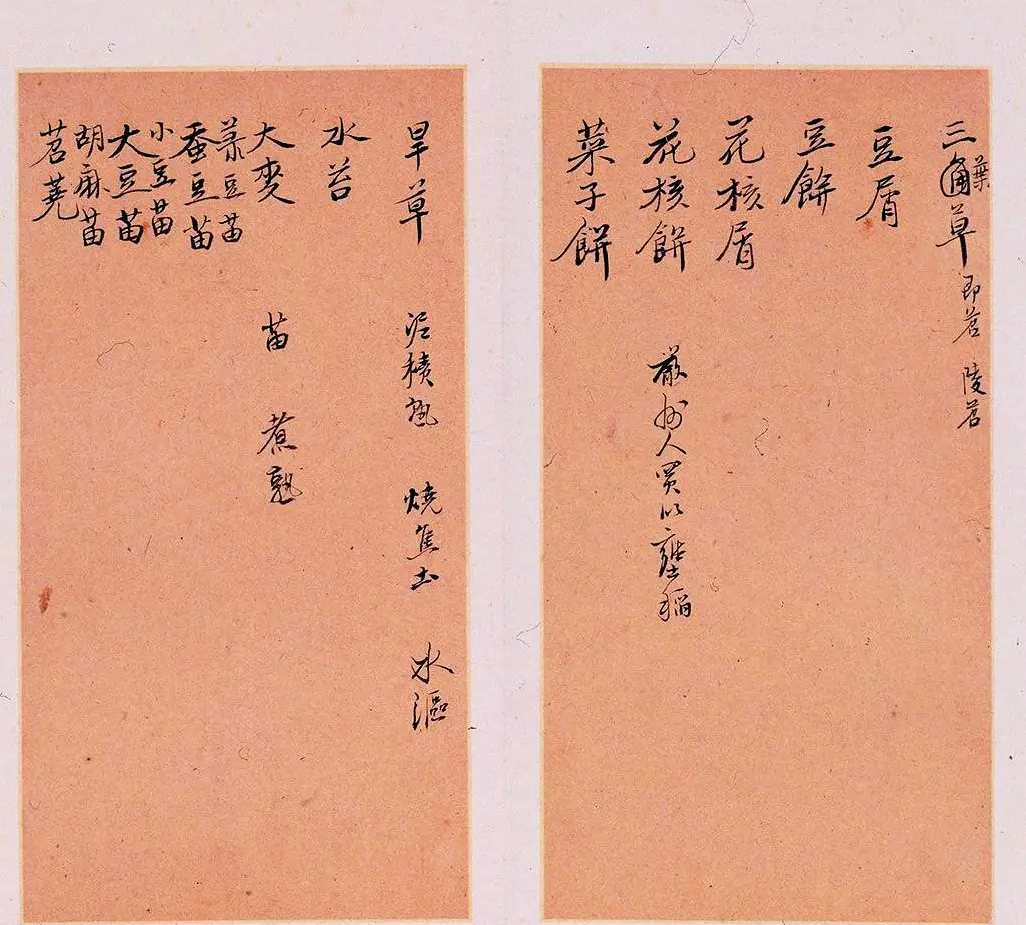 三角葉草 即苕 陵苕
豆屑
豆餅
花核屑
花核餅 嚴州人買以壅稻
菜子餅
旱草 泥積熟 燒焦土 水漚
水苔
大麥 苗 煮熟
菉豆苗
蚕豆苗
小豆苗
大豆苗
胡麻苗
苕蕘